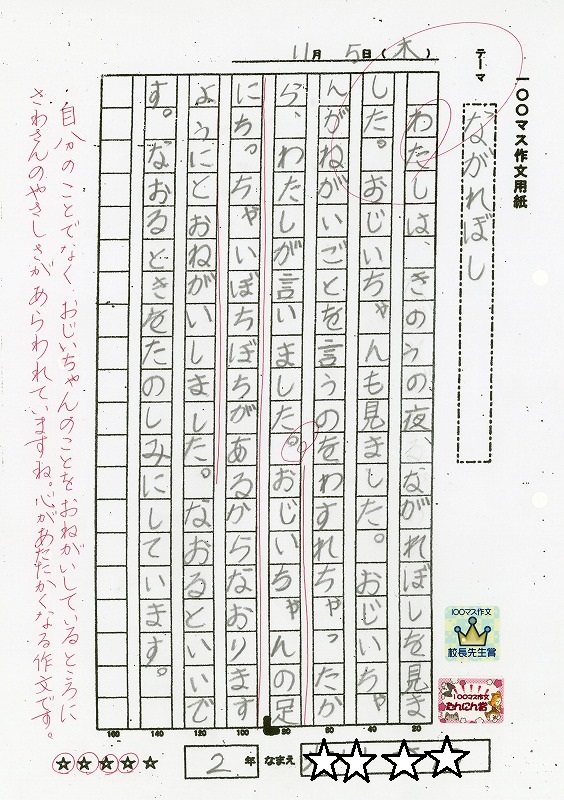 一〇〇マス作文用紙
テーマ
ながれぼし
11月5日(木)
わたしは、きのうの夜、ながれぼしを見ま
した。おじいちゃんも見ました。おじいちゃ
んがねがいごとを言うのをわすれちゃったか
ら、わたしが言いました。おじいちゃんの足
にちっちゃいぼちぼちがあるからなおります
ようにとおねがいしました。なおるといいで
す。なおるときをたのしみにしています。
20
40
60
80
100
120
140
160
2年 なまえ
自分のことでなく、おじいちゃんのことをおねがいしているところに
さわさんのやさしさがあらわれていますね。心があたたかくなる作文です。
100マス作文
校長先生賞
100マス作文
たんにん賞